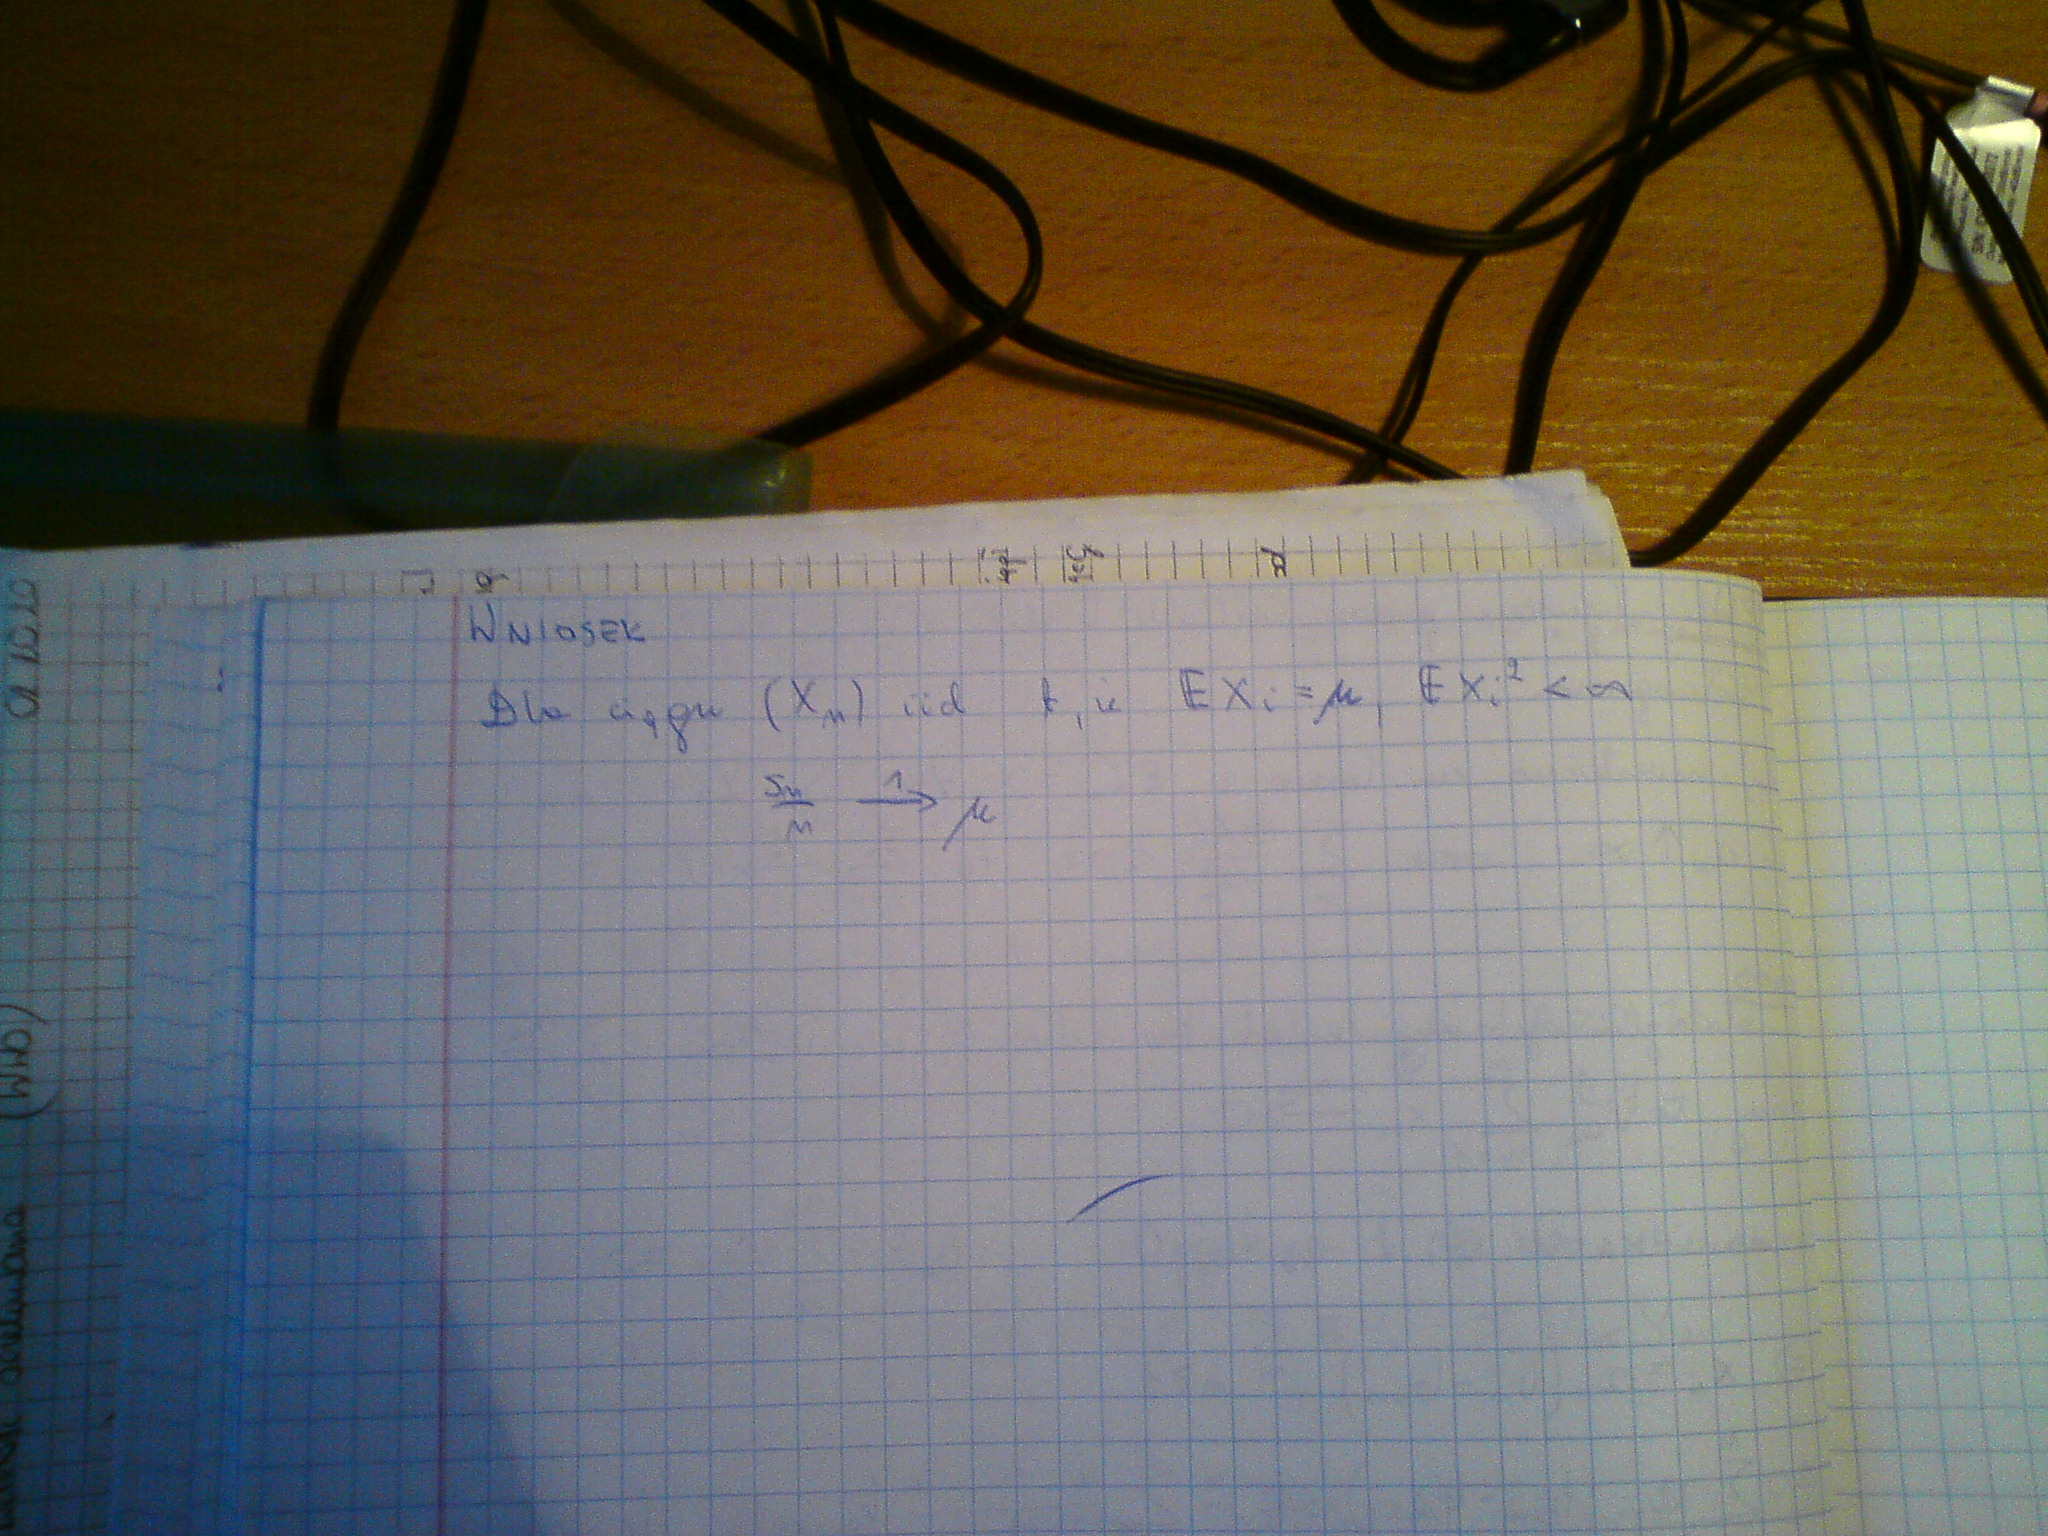 WNIOSEK
Dla ciągu (Xn) iid t, że EXi = μ, EXi² < ∞
Sn/n →¹ μ
(WMO)